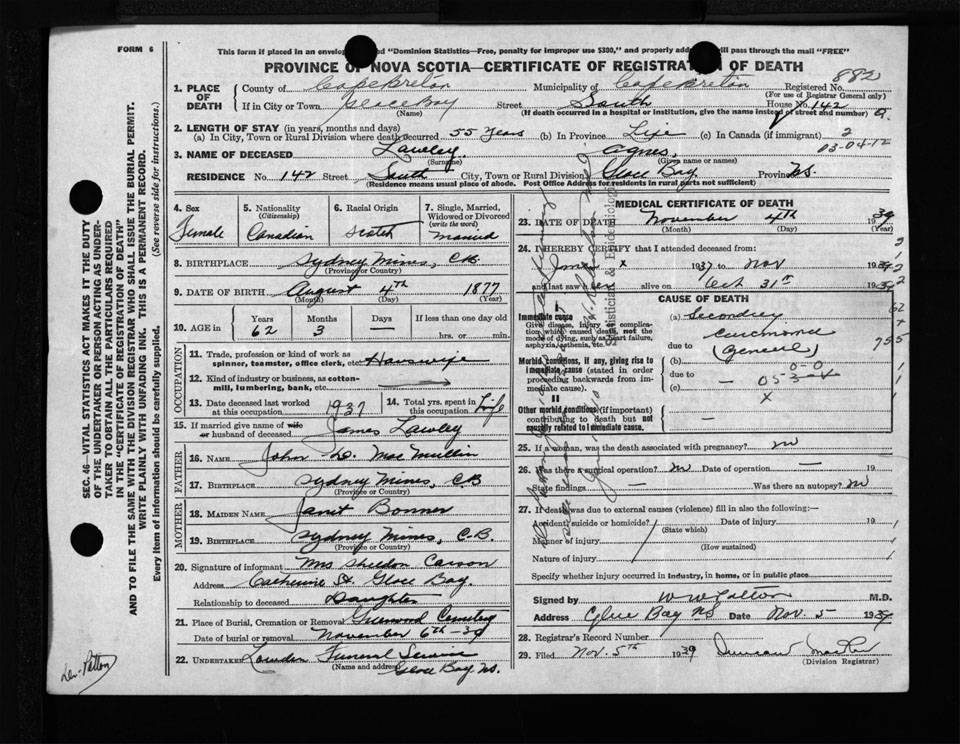 FORM 6
This form if placed in an envelope "Dominion Statistics—Free, penalty for improper use $300," and properly will pass through the mail "FREE"
PROVINCE OF NOVA SCOTIA—CERTIFICATE OF REGISTRATION OF DEATH
882
1. PLACE OF DEATH
County of Cape Breton Municipality of Cape Breton Registered No.
(For use of Registrar General only)
If in City or Town Glace Bay Street South House No. 142
(Name) (If death occurred in a hospital or institution, give the name instead of street and number)
2. LENGTH OF STAY (in years, months and days)
(a) In City, Town or Rural Division where death occurred 55 Years (b) In Province Life (c) In Canada (if immigrant) 2
03-04-12
3. NAME OF DECEASED Lawley, Agnes,
(Surname) (Given name or names)
RESIDENCE No. 142 Street South City, Town or Rural Division Glace Bay Province NS.
(Residence means usual place of abode. Post Office Address for residents in rural parts not sufficient)
4. Sex Female
5. Nationality (Citizenship) Canadian
6. Racial Origin Scotch
7. Single, Married, Widowed or Divorced (write the word) Married
8. BIRTHPLACE Sydney Mines, CB.
(Province or Country)
9. DATE OF BIRTH August 4th 1877
(Month) (Day) (Year)
10. AGE in Years 62 Months 3 Days — If less than one day old
hrs. or min.
OCCUPATION
11. Trade, profession or kind of work as spinner, teamster, office clerk, etc. Housewife
12. Kind of industry or business, as cotton-mill, lumbering, bank, etc.
13. Date deceased last worked at this occupation 1937
14. Total yrs. spent in this occupation Life
15. If married give name of wife or husband of deceased James Lawley
FATHER
16. NAME John D. Mac Mullin
17. BIRTHPLACE Sydney Mines, CB
(Province or Country)
MOTHER
18. MAIDEN NAME Janit Bonner
19. BIRTHPLACE Sydney Mines, C.B.
(Province or Country)
20. Signature of informant Mrs Sheldon Carson
Address Catherine St. Glace Bay
Relationship to deceased Daughter
21. Place of Burial, Cremation or Removal Greenwood Cemetery
Date of burial or removal November 6th - 39
22. UNDERTAKER Lowden Funeral Service
(Name and address) Glace Bay NS.
MEDICAL CERTIFICATE OF DEATH
23. DATE OF DEATH November 4th 1939
(Month) (Day) (Year)
24. I HEREBY CERTIFY that I attended deceased from:
1937 to Nov 1939
and last saw her alive on Oct 31st 1939
CAUSE OF DEATH
Immediate cause
Give disease, injury or complication which caused death, not the mode of dying, such as heart failure, asphyxia, asthenia, etc.
(a) Secondary
Carcinoma
due to (General)
Morbid conditions, if any, giving rise to immediate cause (stated in order proceeding backwards from immediate cause).
(b)
due to
(c)
II
Other morbid conditions (if important) contributing to death but not causally related to immediate cause.
25. If a woman, was the death associated with pregnancy? no
26. Was there a surgical operation? no Date of operation — 19
State findings — Was there an autopsy? no
27. If death was due to external causes (violence) fill in also the following:—
Accident, suicide or homicide? Date of injury 19
(State which)
Manner of injury
(How sustained)
Nature of injury
Specify whether injury occurred in industry, in home, or in public place
Signed by M.D.
Address Glace Bay NS Date Nov. 5 1939
28. Registrar's Record Number
29. Filed Nov. 5th 1939
(Division Registrar)
Statistician & Epidemiologist
SEC. 46—VITAL STATISTICS ACT MAKES IT THE DUTY
OF THE UNDERTAKER OR PERSON ACTING AS UNDER-
TAKER TO OBTAIN ALL THE PARTICULARS REQUIRED
IN THE "CERTIFICATE OF REGISTRATION OF DEATH"
AND TO FILE THE SAME WITH THE DIVISION REGISTRAR WHO SHALL ISSUE THE BURIAL PERMIT.
WRITE PLAINLY WITH UNFADING INK. THIS IS A PERMANENT RECORD.
Every item of information should be carefully supplied. (See reverse side for instructions.)